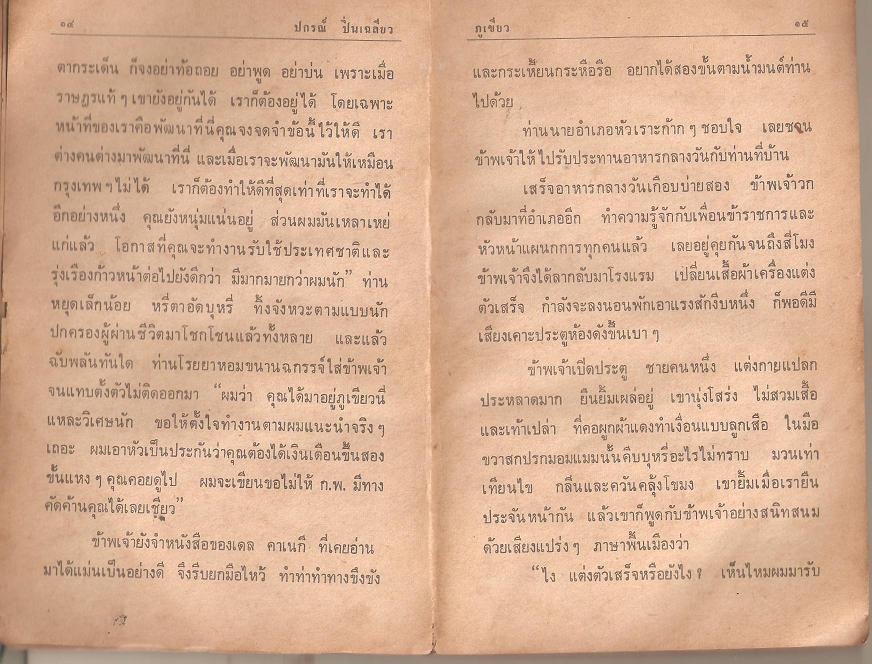 ๑๔ ปกรณ์ ปิ่นเฉลียว
ตากระเด็น ก็จงอย่าท้อถอย อย่าพูด อย่าบ่น เพราะเมื่อ
ราษฎรแท้ ๆ เขายังอยู่กันได้ เราก็ต้องอยู่ได้ โดยเฉพาะ
หน้าที่ของเราคือพัฒนาที่นี่คุณจงจดจำข้อนี้ไว้ให้ดี เรา
ต่างคนต่างมาพัฒนาที่นี่ และเมื่อเราจะพัฒนามันให้เหมือน
กรุงเทพ ฯ ไม่ได้ เราก็ต้องทำให้ดีที่สุดเท่าที่เราจะทำได้
อีกอย่างหนึ่ง คุณยังหนุ่มแน่นอยู่ ส่วนผมมันเหลาเหย่
แก่แล้ว โอกาสที่คุณจะทำงานรับใช้ประเทศชาติและ
รุ่งเรืองก้าวหน้าต่อไปยังดีกว่า มีมากมายกว่าผมนัก” ท่าน
หยุดเล็กน้อย หรี่ตาอัดบุหรี่ ทิ้งจังหวะตามแบบนัก
ปกครองผู้ผ่านชีวิตมาโชกโชนแล้วทั้งหลาย และแล้ว
ฉับพลันทันใด ท่านโรยยาหอมขนานฉกรรจ์ใส่ข้าพเจ้า
จนแทบตั้งตัวไม่ติดออกมา “ผมว่า คุณได้มาอยู่ภูเขียวนี่
แหละวิเศษนัก ขอให้ตั้งใจทำงานตามผมแนะนำจริง ๆ
เถอะ ผมเอาหัวเป็นประกันว่าคุณต้องได้เงินเดือนขึ้นสอง
ขั้นแหง ๆ คุณคอยดูไป ผมจะเขียนขอไม่ให้ ก.พ. มีทาง
คัดค้านคุณได้เลยเชียว”
ข้าพเจ้ายังจำหนังสือของเดล คาเนกี ที่เคยอ่าน
มาได้แม่นเป็นอย่างดี จึงรีบยกมือไหว้ ทำท่าทำทางขึงขัง
ภูเขียว ๑๕
และกระเหี้ยนกระหือรือ อยากได้สองขั้นตามน้ำมนต์ท่าน
ไปด้วย
ท่านนายอำเภอหัวเราะก้าก ๆ ชอบใจ เลยชวน
ข้าพเจ้าให้ไปรับประทานอาหารกลางวันกับท่านที่บ้าน
เสร็จอาหารกลางวันเกือบบ่ายสอง ข้าพเจ้าวก
กลับมาที่อำเภออีก ทำความรู้จักกับเพื่อนข้าราชการและ
หัวหน้าแผนกการทุกคนแล้ว เลยอยู่คุยกันจนถึงสี่โมง
ข้าพเจ้าจึงได้ลากลับมาโรงแรม เปลี่ยนเสื้อผ้าเครื่องแต่ง
ตัวเสร็จ กำลังจะลงนอนพักเอาแรงสักงีบหนึ่ง ก็พอดีมี
เสียงเคาะประตูห้องดังขึ้นเบา ๆ
ข้าพเจ้าเปิดประตู ชายคนหนึ่ง แต่งกายแปลก
ประหลาดมาก ยืนยิ้มเผล่อยู่ เขานุ่งโสร่ง ไม่สวมเสื้อ
และเท้าเปล่า ที่คอผูกผ้าแดงทำเงื่อนแบบลูกเสือ ในมือ
ขวาสกปรกมอมแมมนั้นคีบบุหรี่อะไรไม่ทราบ มวนเท่า
เทียนไข กลิ่นและควันคลุ้งโขมง เขายิ้มเมื่อเรายืน
ประจันหน้ากัน แล้วเขาก็พูดกับข้าพเจ้าอย่างสนิทสนม
ด้วยเสียงแปร่ง ๆ ภาษาพื้นเมืองว่า
“ไง แต่งตัวเสร็จหรือยังไง ? เห็นไหมผมมารับ